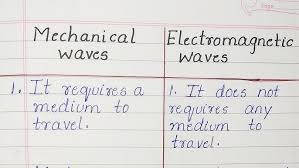 Mechanical waves
Electromagnetic waves
1. It requires a medium to travel.
1. It does not requires any medium to travel.